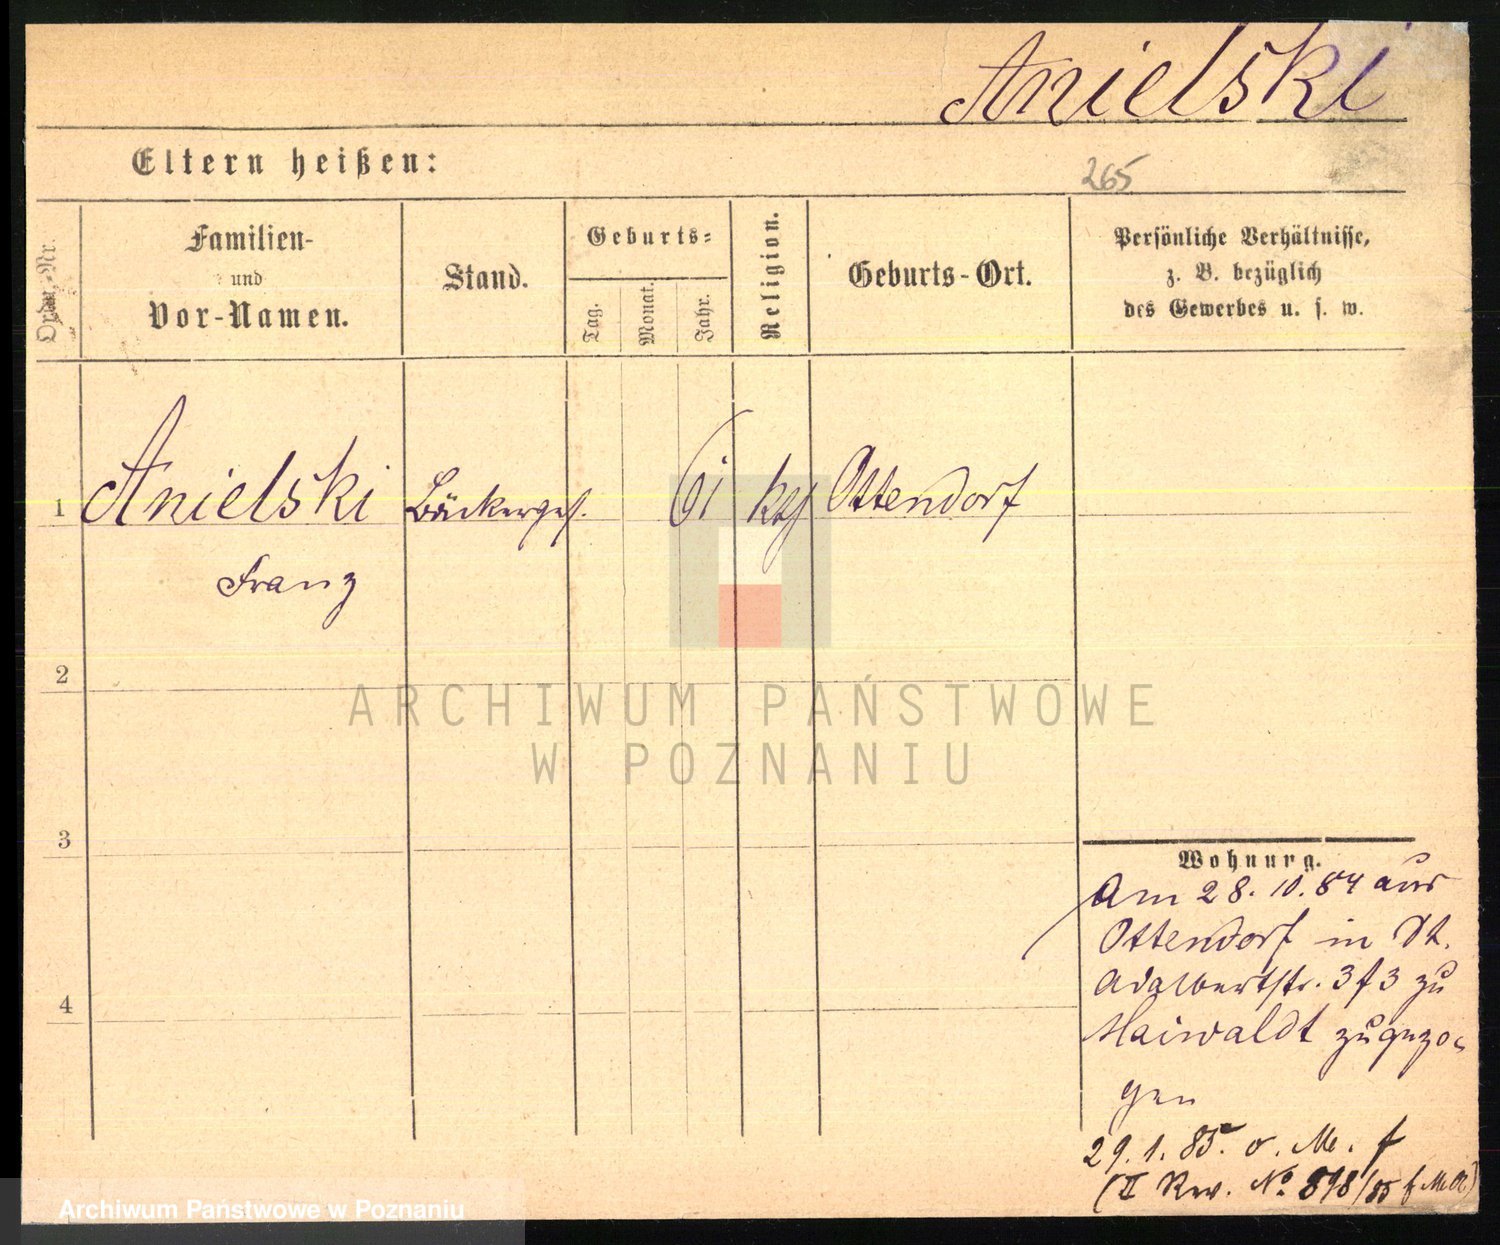 Anielski
Eltern heißen:
265
Ordn.-Nr.
Familien-
und
Vor-Namen.
Stand.
Geburts-
Tag.
Monat.
Jahr.
Religion.
Geburts-Ort.
Persönliche Verhältnisse,
z. B. bezüglich
des Gewerbes u. s. w.
1 Anielski Bäckerges. 61 kth Ottendorf
Franz
2
3
4
Wohnung.
Am 28.10.84 aus
Ottendorf in St.
Adalbertstr. 3 f 3 zu
Maiwaldt zugezo-
gen
29.1.85. o. M. f
(II Rev. No. 898/85
ARCHIWUM PAŃSTWOWE
W POZNANIU
Archiwum Państwowe w Poznaniu